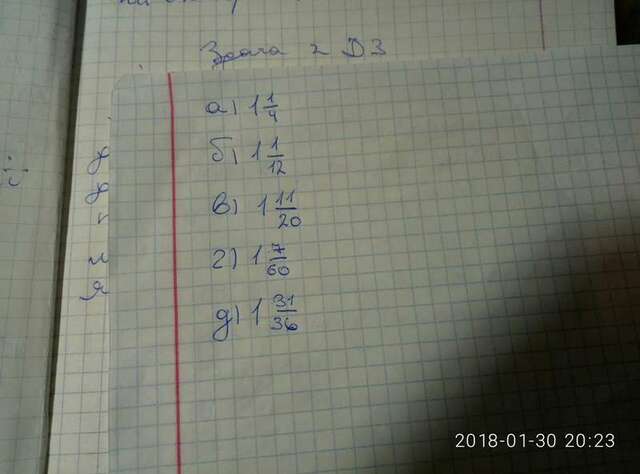 Здача 2 ДЗ
а) 1 1/4
б) 1 1/12
в) 1 11/20
г) 1 7/60
д) 1 31/36
2018-01-30 20:23